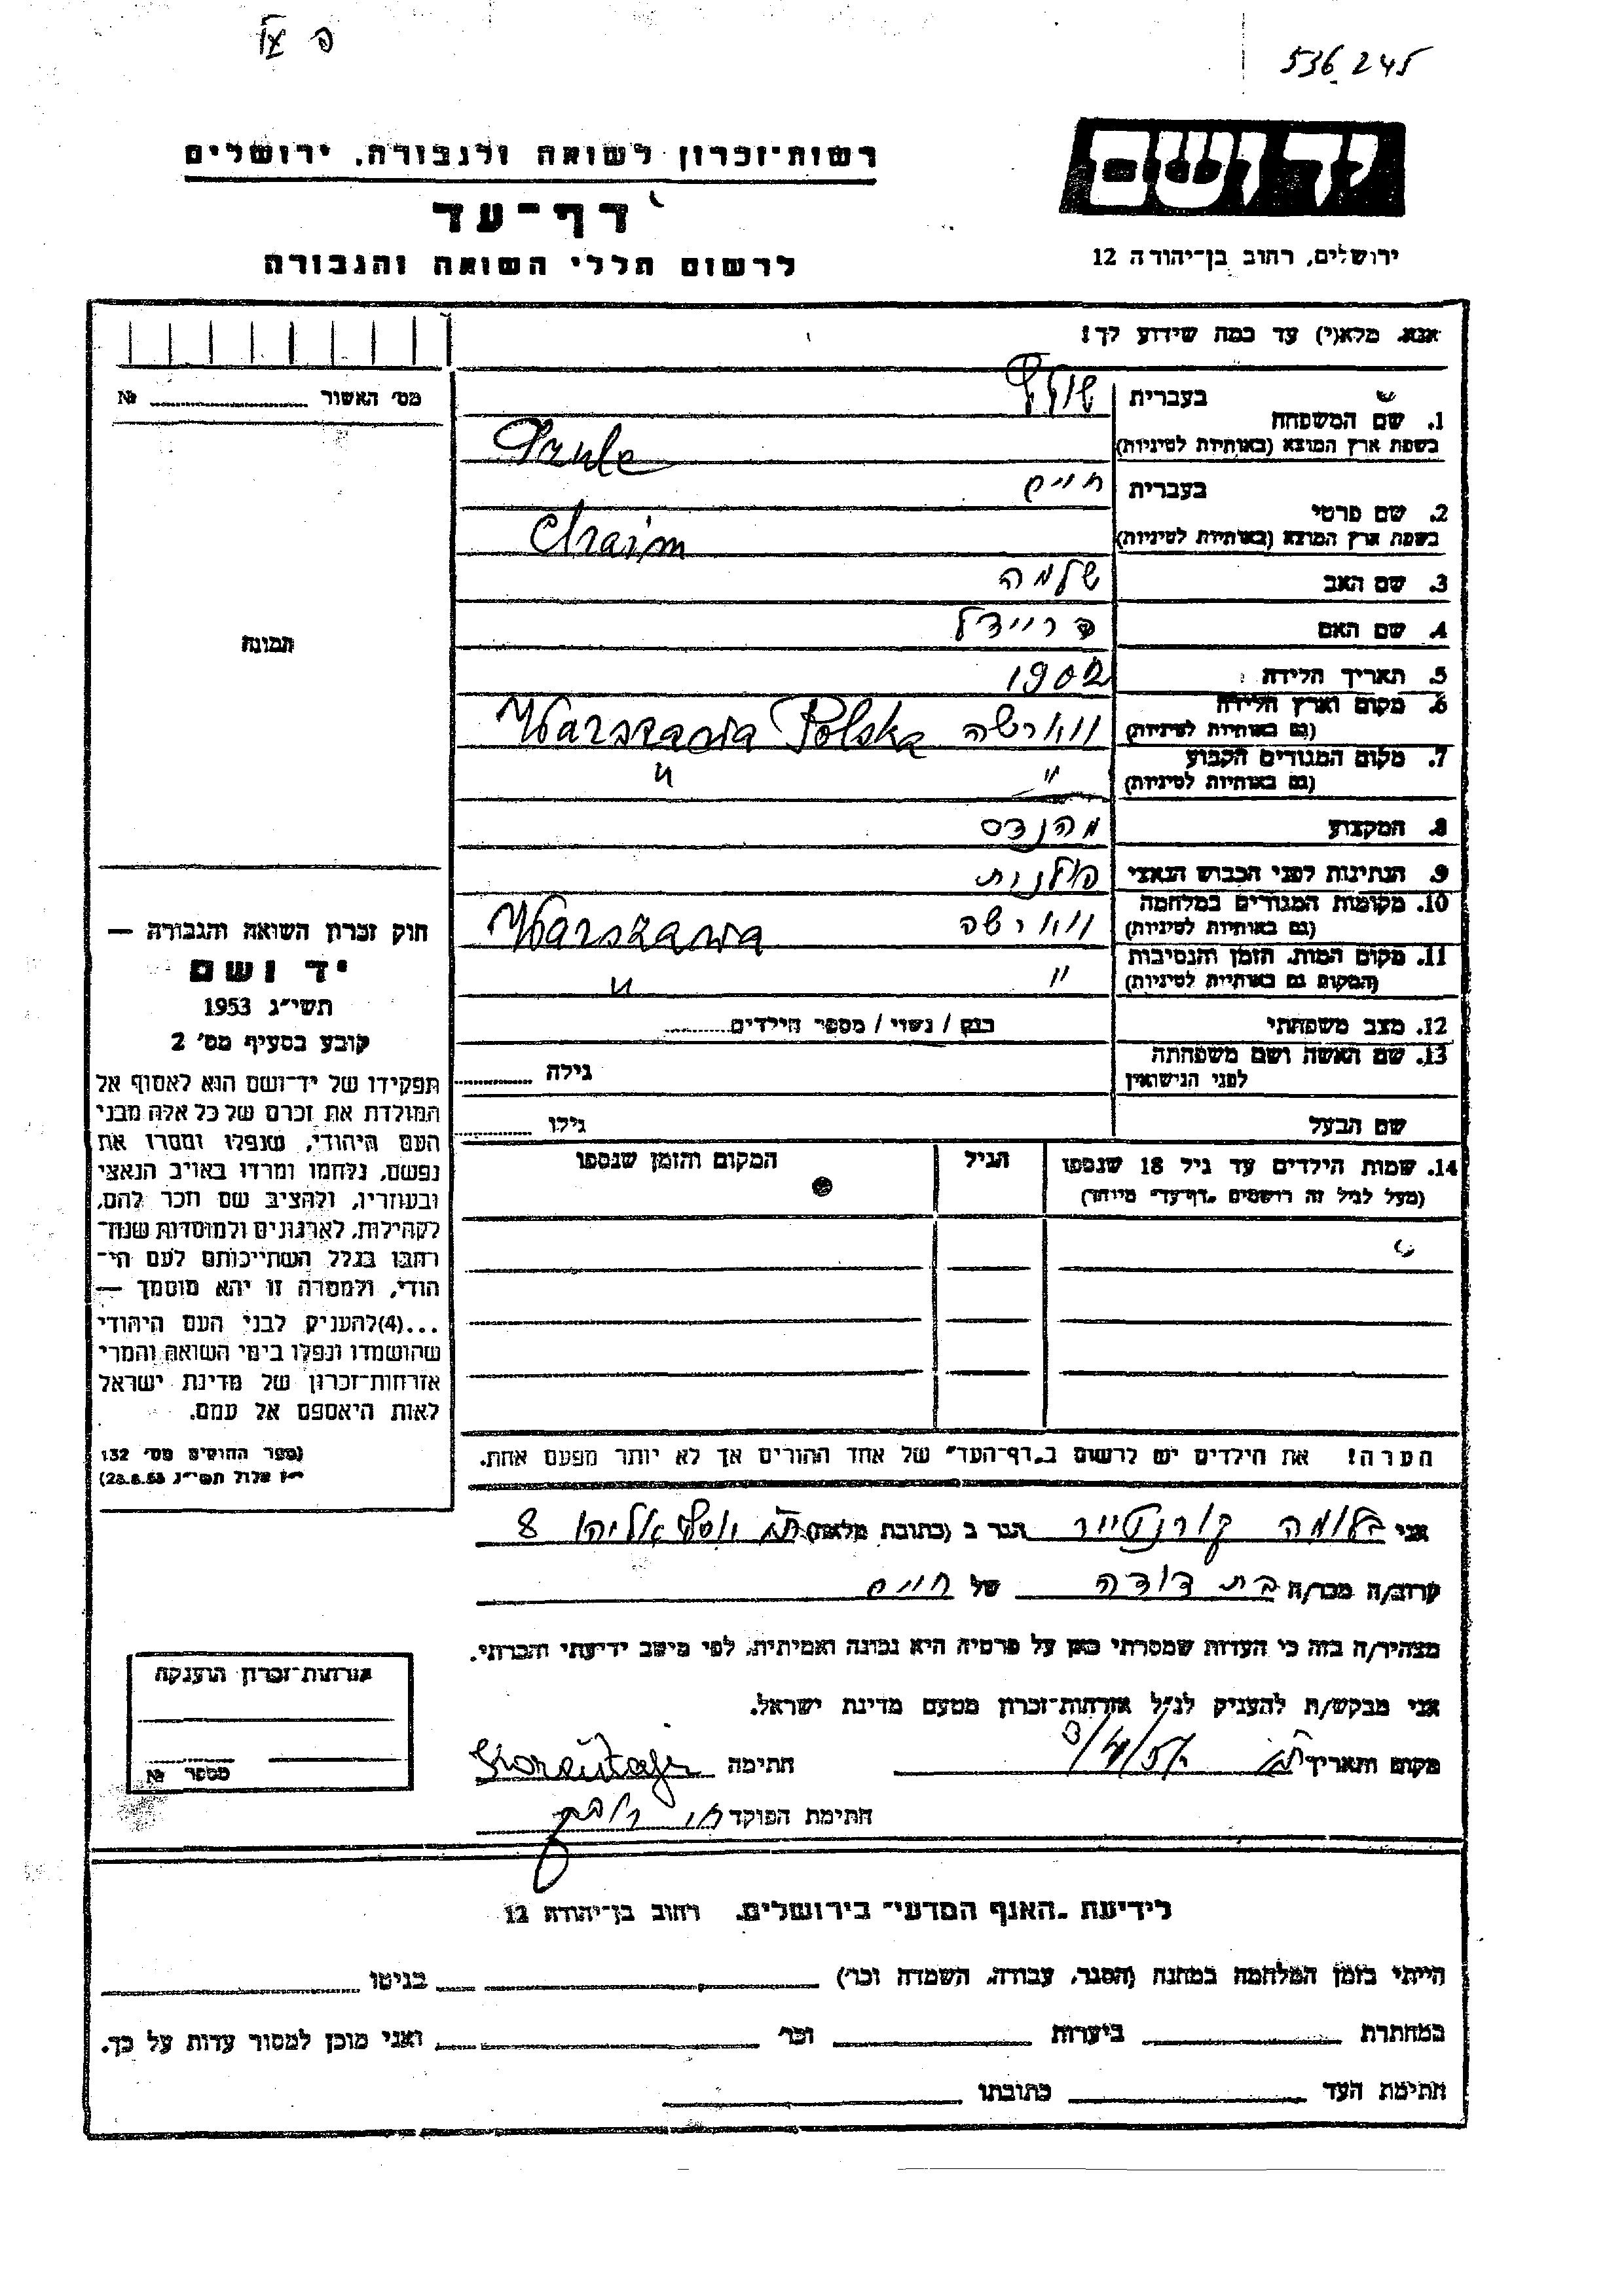 536245
יד ושם
ירושלים, רחוב בן־יהודה 12
רשות־זכרון לשואה ולגבורה, ירושלים
דף־עד
לרשום חללי השואה והגבורה
אנא, מלא(י) עד כמה שידוע לך!
מס׳ האשור № 
1. שם המשפחה
בעברית
בשפת ארץ המוצא (באותיות לטיניות)
2. שם פרטי
בעברית חיים
בשפת ארץ המוצא (באותיות לטיניות) Chaim
3. שם האב שלמה
4. שם האם פריידל
5. תאריך הלידה: 1902
6. מקום וארץ הלידה
(גם באותיות לטיניות) ווארשה Warszawa Polska
7. מקום המגורים הקבוע
(גם באותיות לטיניות) " "
8. המקצוע מהנדס
9. הנתינות לפני הכבוש הנאצי פולנית
10. מקומות המגורים במלחמה
(גם באותיות לטיניות) ווארשה Warszawa
11. מקום המות, הזמן והנסיבות
(המקום גם באותיות לטיניות) " "
12. מצב משפחתי רווק / נשוי / מספר הילדים
13. שם האשה ושם משפחתה
לפני הנישואין גילה
שם הבעל גילו
14. שמות הילדים עד גיל 18 שנספו הגיל המקום והזמן שנספו
(מעל לגיל זה רושמים "דף־עד" מיוחד)
הערה! את הילדים יש לרשום ב"דף־העד" של אחד ההורים אך לא יותר מפעם אחת.
תמונה
חוק זכרון השואה והגבורה —
יד ושם
תשי״ג 1953
קובע בסעיף מס׳ 2
תפקידו של יד־ושם הוא לאסוף אל
המולדת את זכרם של כל אלה מבני
העם היהודי, שנפלו ומסרו את
נפשם, נלחמו ומרדו באויב הנאצי
ובעוזריו, ולהציב שם וזכר להם,
לקהילות, לארגונים ולמוסדות שנח־
רבו בגלל השתייכותם לעם הי־
הודי, ולמטרה זו יהא מוסמך —
...(4) להעניק לבני העם היהודי
שהושמדו ונפלו בימי השואה והמרי
אזרחות־זכרון של מדינת ישראל
לאות היאספם אל עמם.
(ספר החוקים מס׳ 132
י״ז אלול תשי״ג 28.8.53)
אני בלומה הגר ב (כתובת מלאה) יוסף אליהו 8
קרוב/ה מכר/ה בת דודה של חיים
מצהיר/ה בזה כי העדות שמסרתי כאן על פרטיה היא נכונה ואמיתית, לפי מיטב ידיעתי והכרתי.
אני מבקש/ת להעניק לנ״ל אזרחות־זכרון מטעם מדינת ישראל.
מקום ותאריך חתימה
חתימת הפוקד
אזרחות־זכרון הוענקה
מספר №
לידיעת "האגף המדעי" בירושלים, רחוב בן־יהודה 12
הייתי בזמן המלחמה במחנה (הסגר, עבודה, השמדה וכו׳) בגיטו
במחתרת ביערות וכו׳ ואני מוכן למסור עדות על כך.
חתימת העד כתובתו